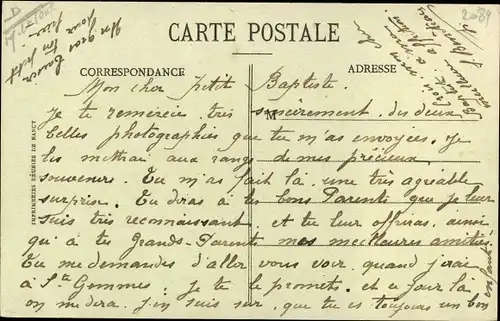 CARTE POSTALE
CORRESPONDANCE
ADRESSE
Mon cher Petit Baptiste.
Je te remercie très sincèrement des deux
M
belles photographies que tu m'as envoyées. Je
les mettrai aux rangs de mes précieux
souvenirs. Tu m'as fait là une très agréable
surprise. Tu diras à tes bons Parents que je leur
suis très reconnaissant et tu leur offriras ainsi
qu'à tes Grands-Parents mes meilleures amitiés.
Tu me demandes d'aller vous voir quand j'irai
à Ste Gemmes; je te le promets. et ce jour là
on me dira. j'en suis sur, que tu es toujours un bon
enfant
Un gros
baiser
ton petit
pour
IMPRIMERIES RÉUNIES DE NANCY
2089